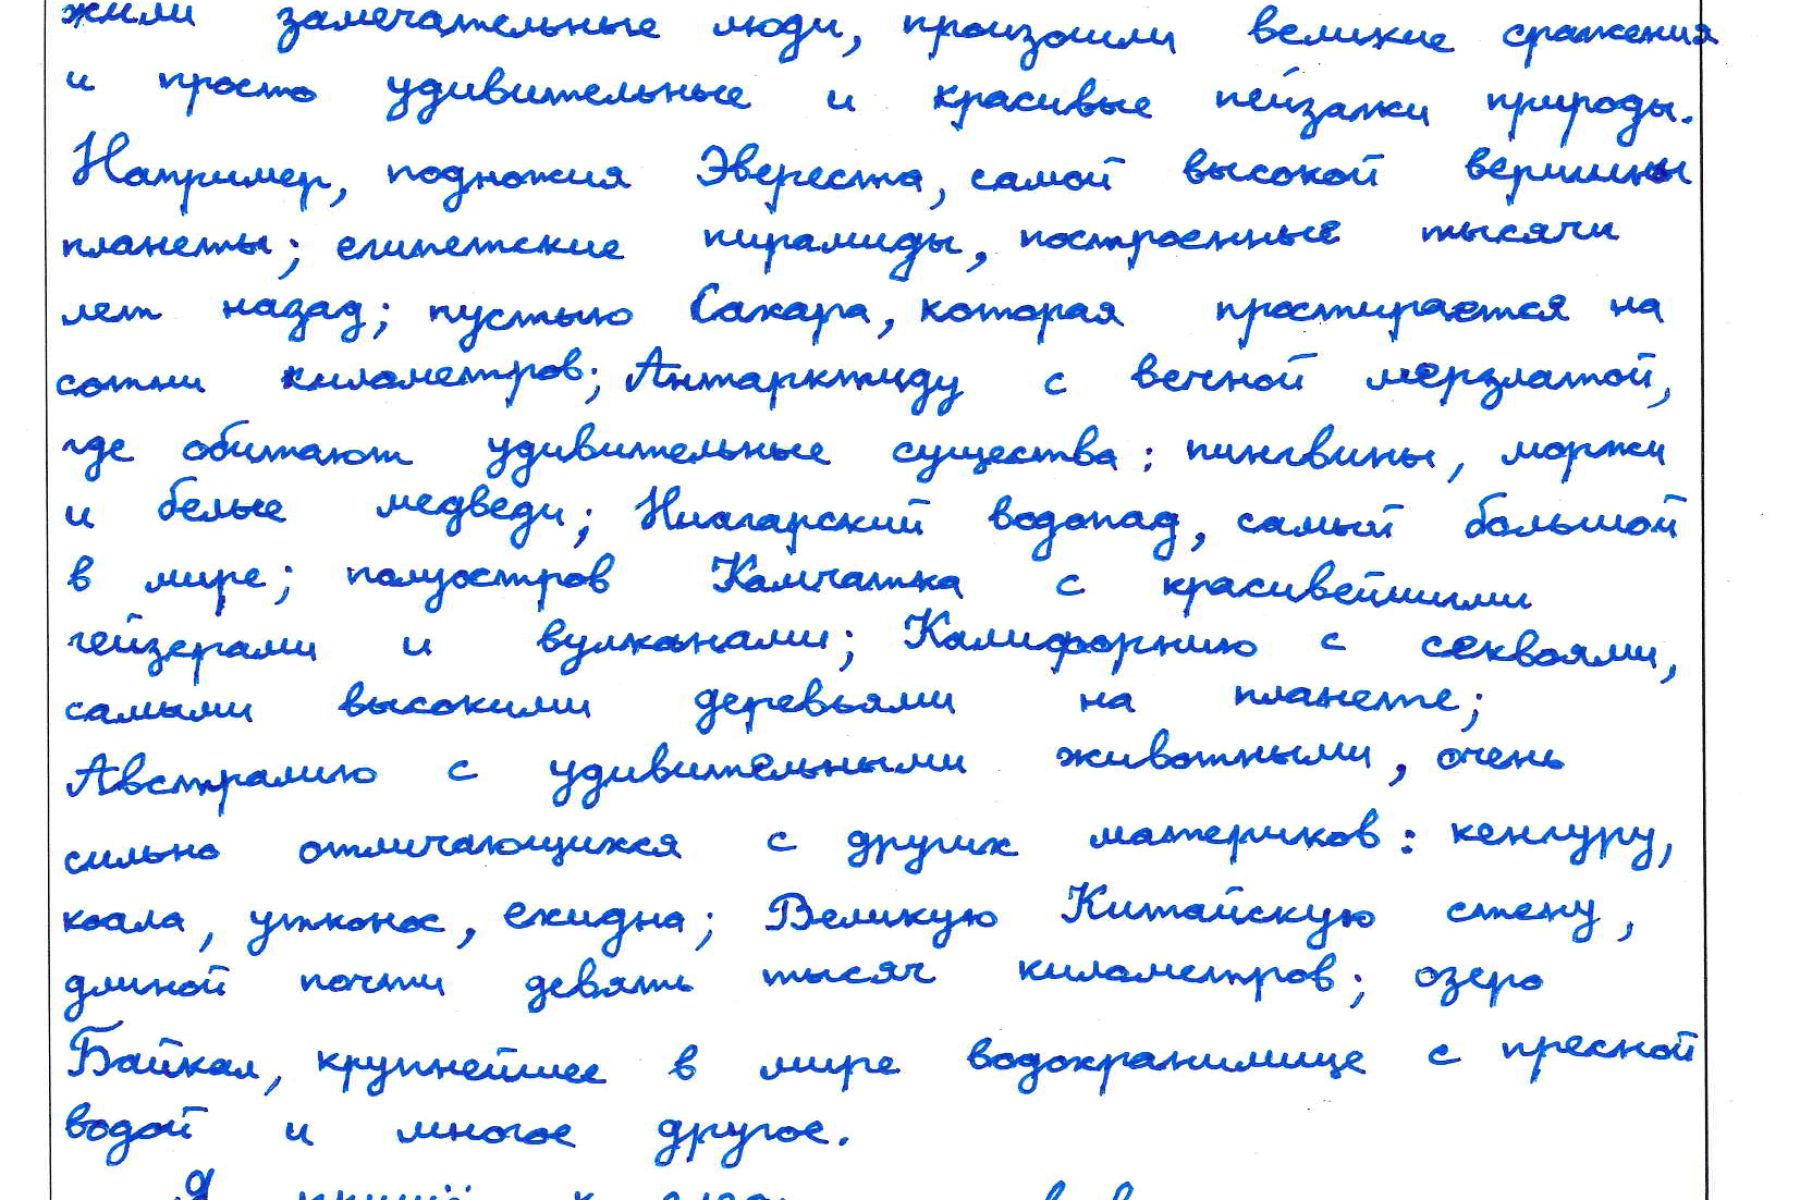 жили замечательные люди, произошли великие сражения
и просто удивительные и красивые пейзажи природы.
Например, подножия Эвереста, самой высокой вершины
планеты; египетские пирамиды, построенные тысячи
лет назад; пустыню Сахара, которая простирается на
сотни километров; Антарктиду с вечной мерзлатой,
где обитают удивительные существа: пингвины, моржи
и белые медведи; Ниагарский водопад, самый большой
в мире; полуостров Камчатка с красивейшими
гейзерами и вулканами; Калифорнию с секвоями,
самыми высокими деревьями на планете;
Австралию с удивительными животными, очень
сильно отличающихся с других материков: кенгуру,
коала, утконос, ехидна; Великую Китайскую стену,
длиной почти девять тысяч километров; озеро
Байкал, крупнейшее в мире водохранилище с пресной
водой и многое другое.
Я